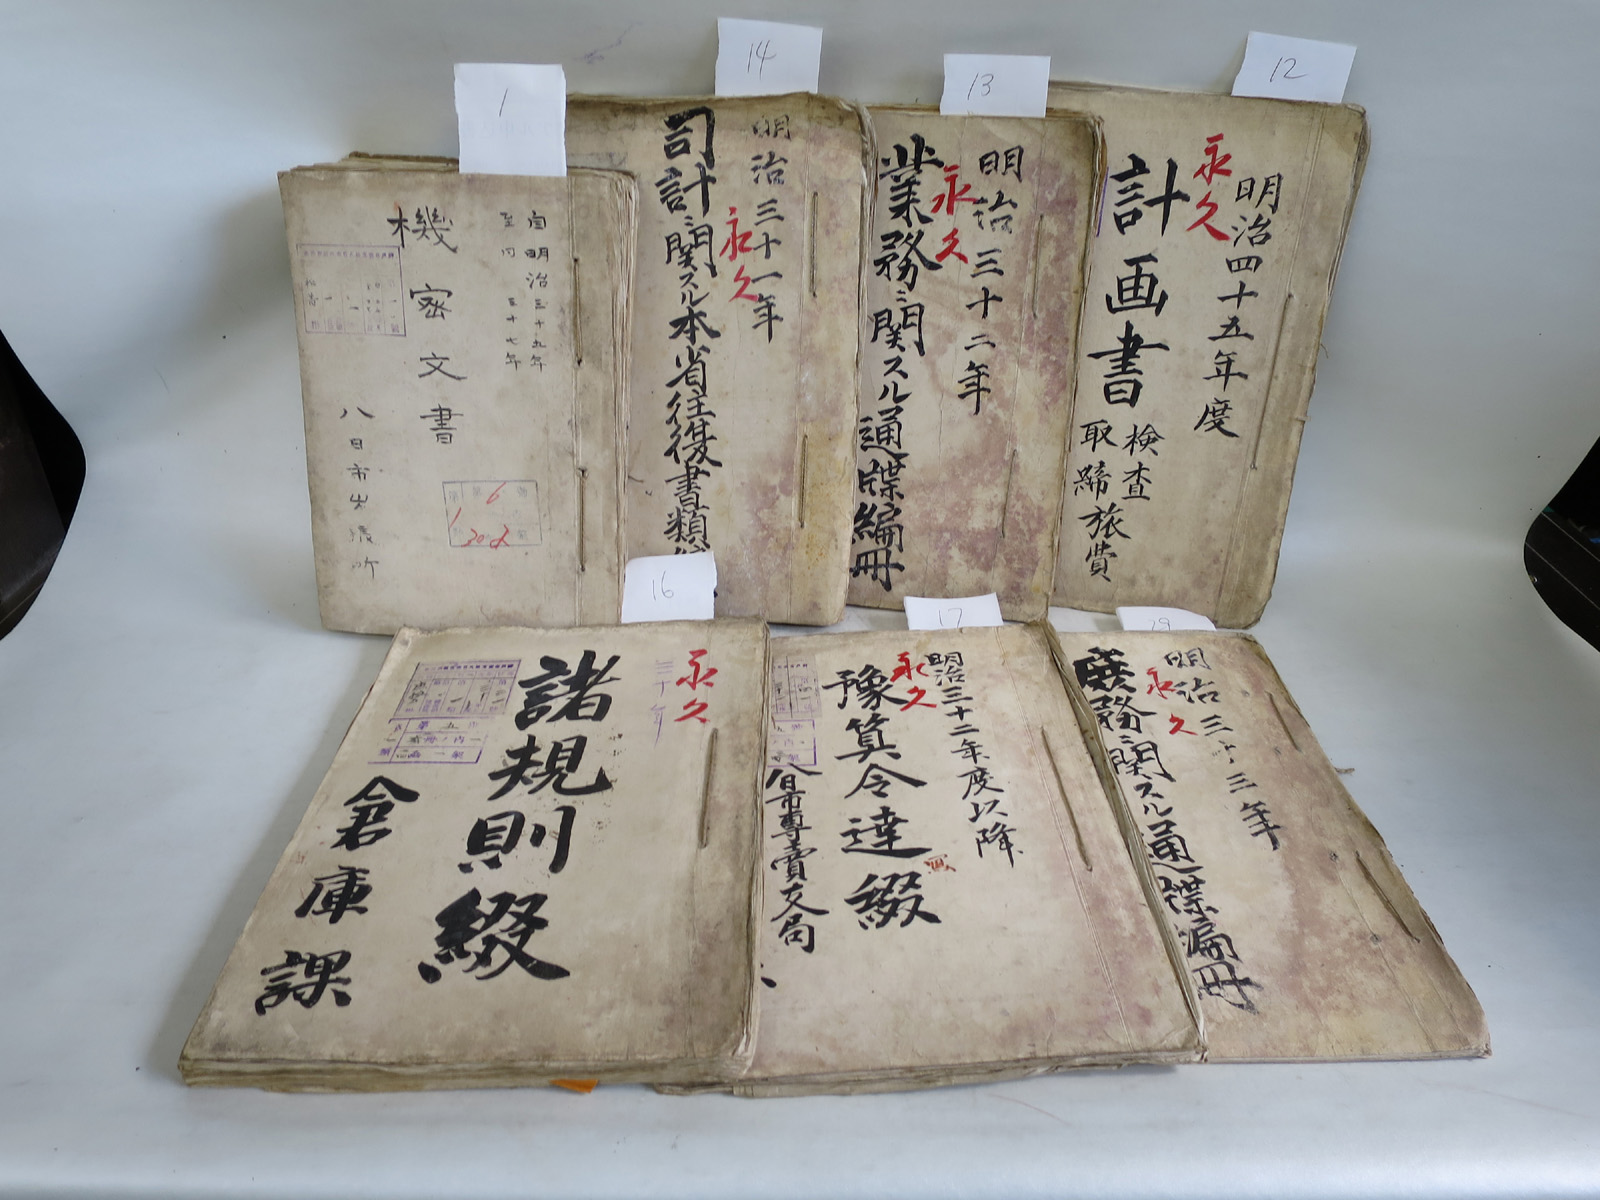 1
自明治三十九年
至同三十七年
機密文書
八日市出張所
第 6 号
14
明治三十一年
永久
司計ニ関スル本省往復書類
13
明治三十二年
永久
業務ニ関スル通牒編冊
12
明治四十五年度
永久
計画書
検査
取締
旅費
16
永久
三十年
諸規則綴
倉庫課
17
明治三十二年度以降
永久
豫算令達綴
八日市専賣支局
明治三十三年
永久
庶務ニ関スル通牒編冊